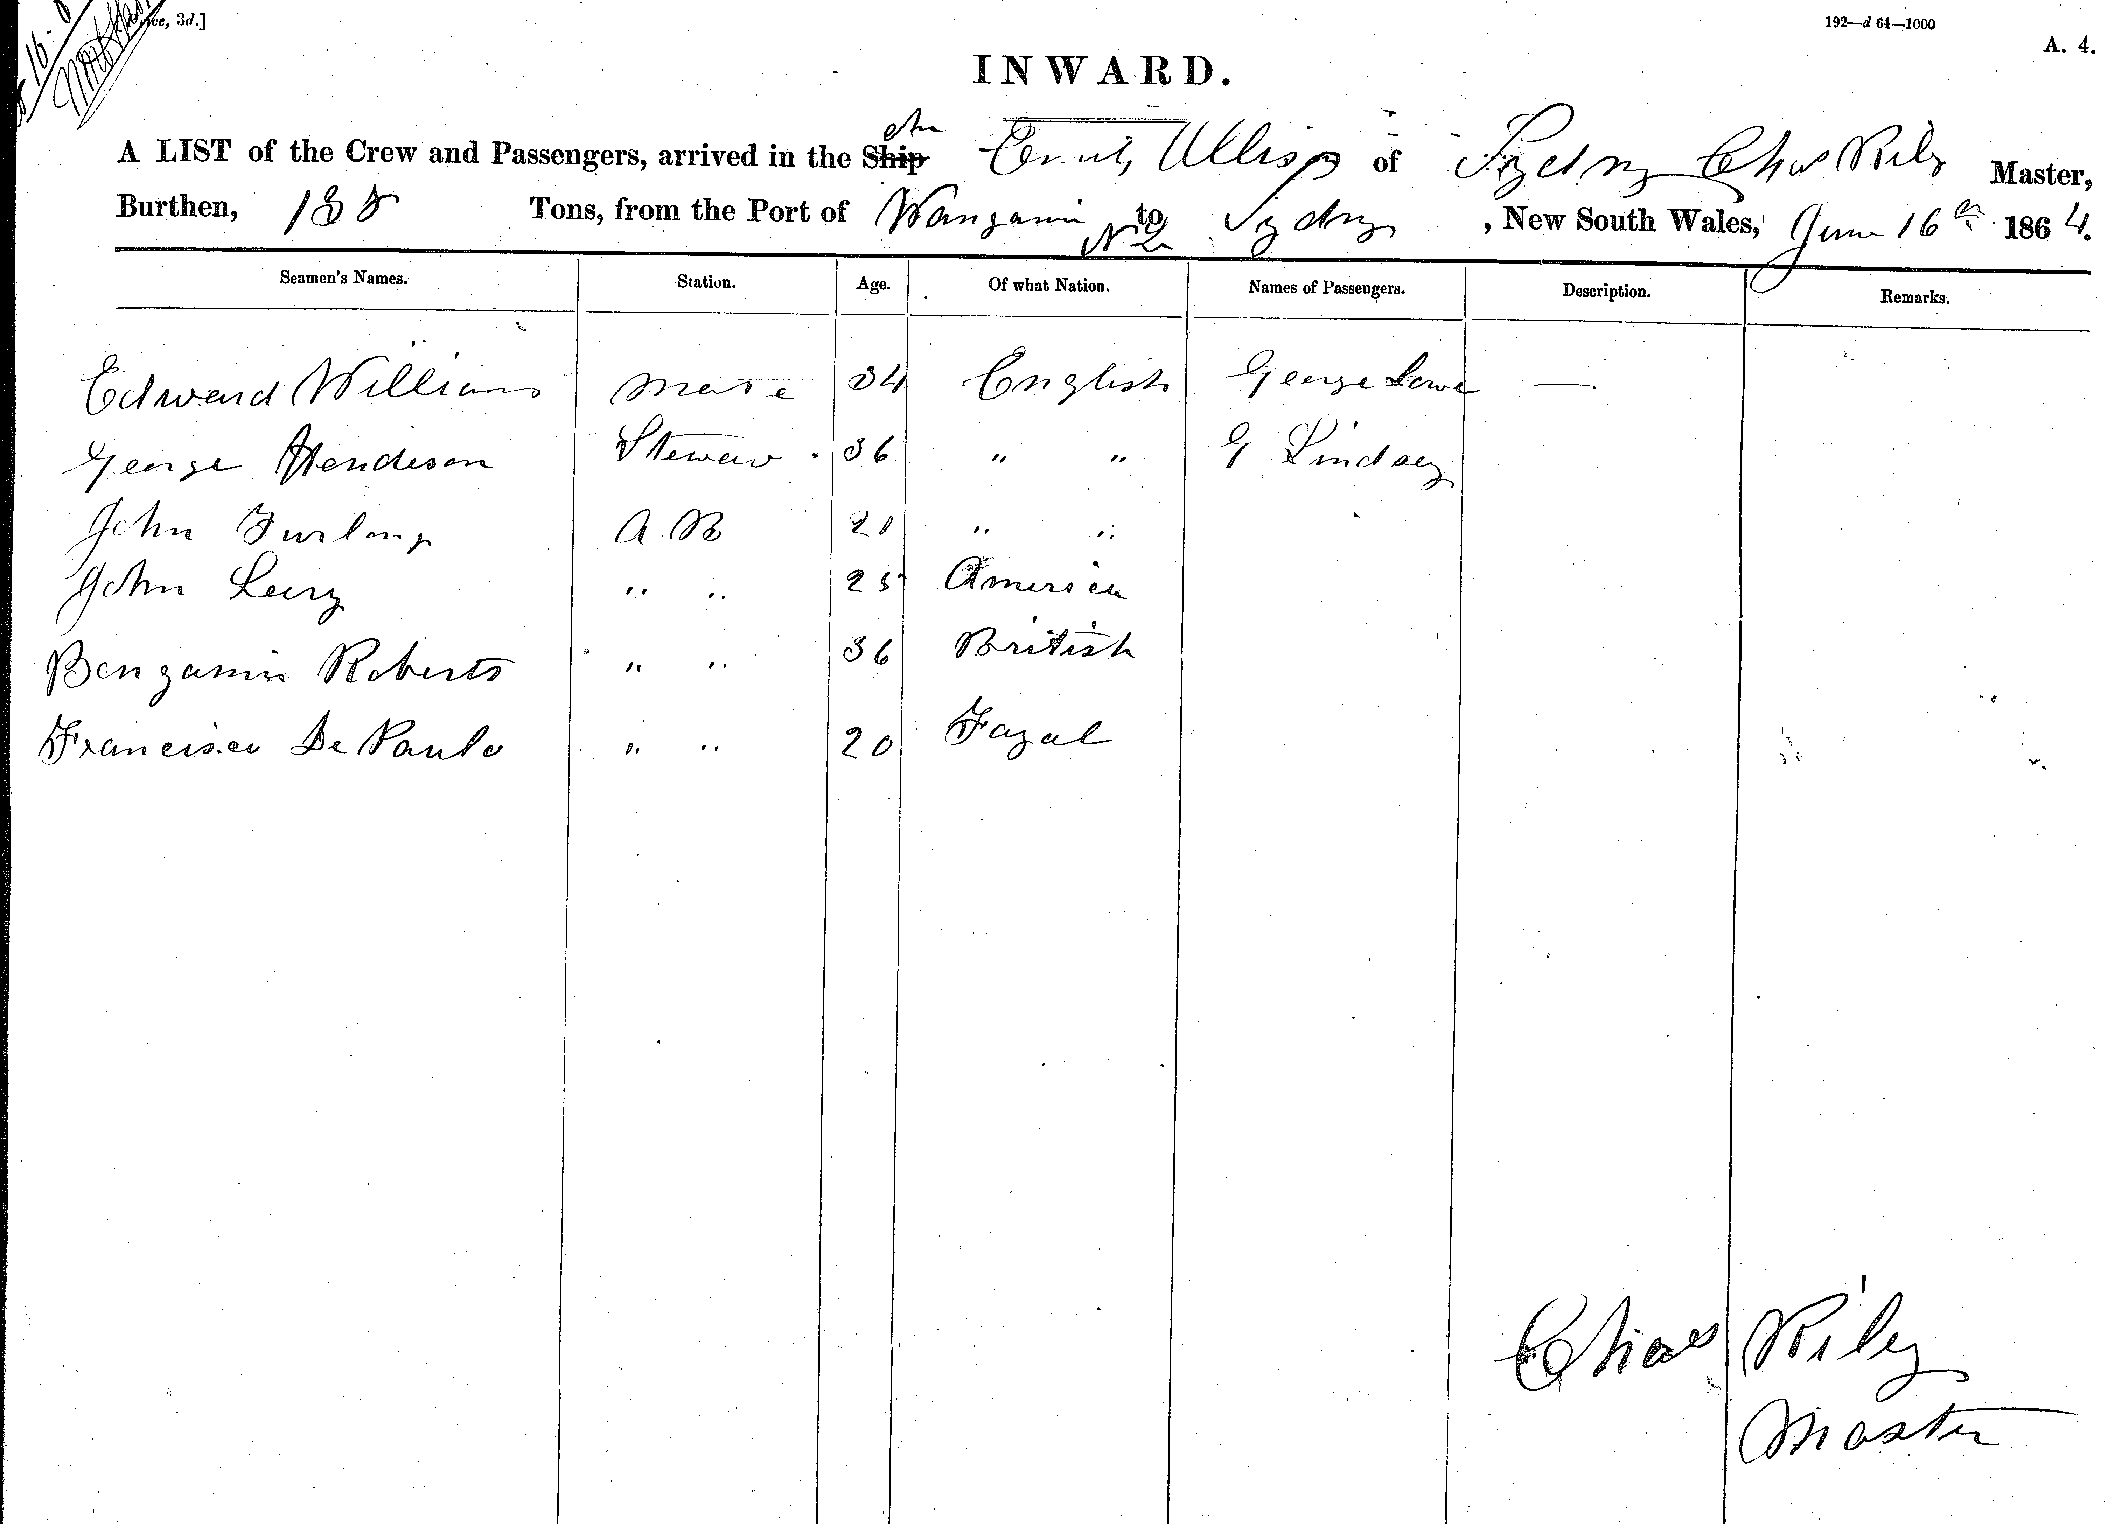 192—d 64—1000
A. 4.
INWARD.
A LIST of the Crew and Passengers, arrived in the Ship Emily Allison of Sydney Chas Riley Master,
Burthen, 188 Tons, from the Port of Wanganui NZ to Sydney, New South Wales, June 16th 1864.
Seamen's Names. Station. Age. Of what Nation. Names of Passengers. Description. Remarks.
Edward Williams Mate 34 English George Lowe —
George Hendeson Steward 36 " " G Lindsay
John Furlong A.B 21 " "
John Leury " " 25 America
Bengamin Roberts " " 36 British
Francisco De Paulo " " 20 Fayal
Chas Riley
Master